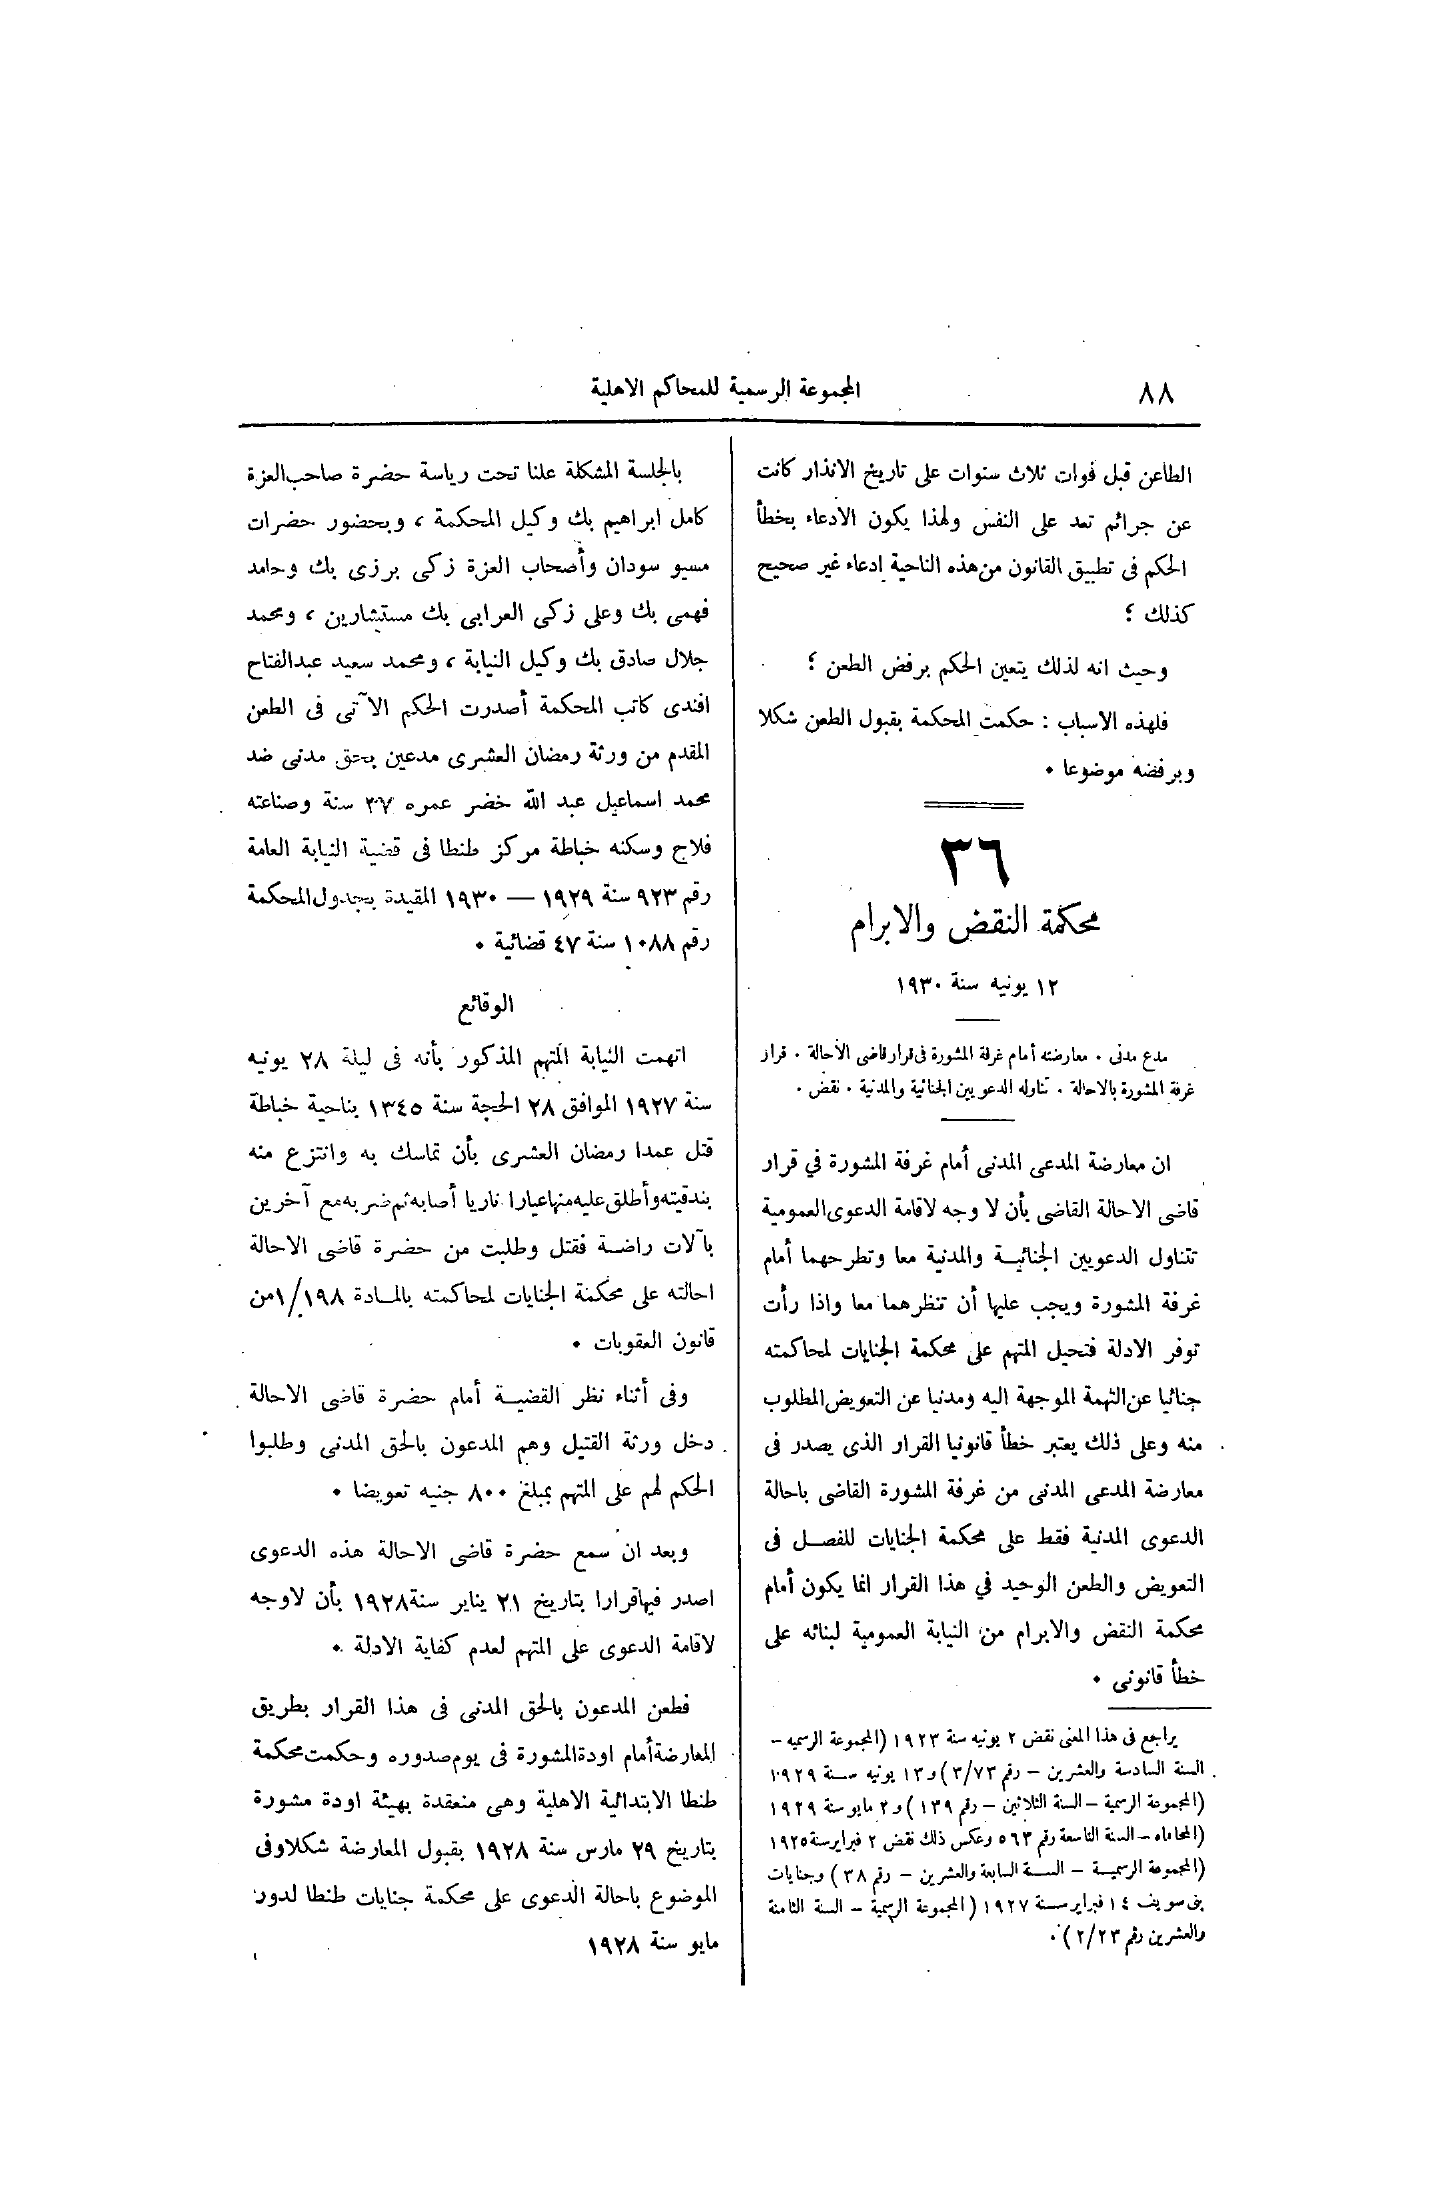 ٨٨
المجموعة الرسمية للمحاكم الاهلية
الطاعن قبل فوات ثلاث سنوات على تاريخ الانذار كانت
عن جرائم تعد على النفس ولهذا يكون الادعاء بخطأ
الحكم فى تطبيق القانون من هذه الناحية إدعاء غير صحيح
كذلك ؛
وحيث انه لذلك يتعين الحكم برفض الطعن ؛
فلهذه الاسباب : حكمت المحكمة بقبول الطعن شكلا
وبرفضه موضوعا ٠
٣٦
محكمة النقض والابرام
١٢ يونيه سنة ١٩٣٠
مدع مدنى ٠ معارضته أمام غرفة المشورة فى قرار قاضى الأحالة ٠ قرار
غرفة المشورة بالاحالة ٠ تناوله الدعويين الجنائية والمدنية ٠ نقض ٠
ان معارضة المدعى المدنى أمام غرفة المشورة في قرار
قاضى الاحالة القاضى بأن لا وجه لاقامة الدعوى العمومية
تتناول الدعويين الجنائيــة والمدنية معا وتطرحهما أمام
غرفة المشورة ويجب عليها أن تنظرهما معا واذا رأت
توفر الادلة فتحيل المتهم على محكمة الجنايات لمحاكمته
جنائيا عن التهمة الموجهة اليه ومدنيا عن التعويض المطلوب
منه وعلى ذلك يعتبر خطأ قانونيا القرار الذى يصدر فى
معارضة المدعى المدنى من غرفة المشورة القاضى باحالة
الدعوى المدنية فقط على محكمة الجنايات للفصــل فى
التعويض والطعن الوحيد في هذا القرار انما يكون أمام
محكمة النقض والابرام من النيابة العمومية لبنائه على
خطأ قانونى ٠
يراجع فى هذا المعنى نقض ٢ يونيه سنة ١٩٢٣ (المجموعة الرسميه –
السنة السادسة والعشرين – رقم ٣/٧٣) و١٣ يونيه ســنة ١٩٢٩
(المجموعة الرسمية – السنة الثلاثين – رقم ١٣٩) و٢ مايو سنة ١٩٢٩
(المحاماه – السنة التاسعة رقم ٥٦٣ وعكس ذلك نقض ٢ فبراير سنة ١٩٢٥
(المجموعة الرسميــة – الســنة السابعة والعشرين – رقم ٣٨) وجنايات
بنى سويف ١٤ فبراير ســنة ١٩٢٧ (المجموعة الرسمية – السنة الثامنة
والعشرين رقم ٢/٢٣) ٠
بالجلسة المشكلة علنا تحت رياسة حضرة صاحب العزة
كامل ابراهيم بك وكيل المحكمة ، وبحضور حضرات
مسيو سودان وأصحاب العزة زكى برزى بك وحامد
فهمى بك وعلى زكى العرابى بك مستشارين ، ومحمد
جلال صادق بك وكيل النيابة ، ومحمد سعيد عبدالفتاح
افندى كاتب المحكمة أصدرت الحكم الآتى فى الطعن
المقدم من ورثة رمضان العشرى مدعين بحق مدنى ضد
محمد اسماعيل عبد الله خضر عمره ٣٧ سنة وصناعته
فلاح وسكنه خباطة مركز طنطا فى قضية النيابة العامة
رقم ٩٢٣ سنة ١٩٢٩ — ١٩٣٠ المقيدة بجدول المحكمة
رقم ١٠٨٨ سنة ٤٧ قضائية ٠
الوقائع
اتهمت النيابة المتهم المذكور بأنه فى ليلة ٢٨ يونيه
سنة ١٩٢٧ الموافق ٢٨ الحجة سنة ١٣٤٥ بناحية خباطة
قتل عمدا رمضان العشرى بأن تماسك به وانتزع منه
بندقيته وأطلق عليه منها عيارا ناريا أصابه ثم ضربه مع آخرين
بآلات راضــة فقتل وطلبت من حضرة قاضى الاحالة
احالته على محكمة الجنايات لمحاكمته بالمــادة ١/١٩٨ من
قانون العقوبات ٠
وفى أثناء نظر القضيــة أمام حضرة قاضى الاحالة
دخل ورثة القتيل وهم المدعون بالحق المدنى وطلبوا
الحكم لهم على المتهم بمبلغ ٨٠٠ جنيه تعويضا ٠
وبعد ان سمع حضرة قاضى الاحالة هذه الدعوى
اصدر فيها قرارا بتاريخ ٢١ يناير سنة ١٩٢٨ بأن لاوجه
لاقامة الدعوى على المتهم لعدم كفاية الادلة ٠
فطعن المدعون بالحق المدنى فى هذا القرار بطريق
المعارضة أمام اودة المشورة فى يوم صدوره وحكمت محكمة
طنطا الابتدائية الاهلية وهى منعقدة بهيئة اودة مشورة
بتاريخ ٢٩ مارس سنة ١٩٢٨ بقبول المعارضة شكلا وفى
الموضوع باحالة الدعوى على محكمة جنايات طنطا لدور
مايو سنة ١٩٢٨